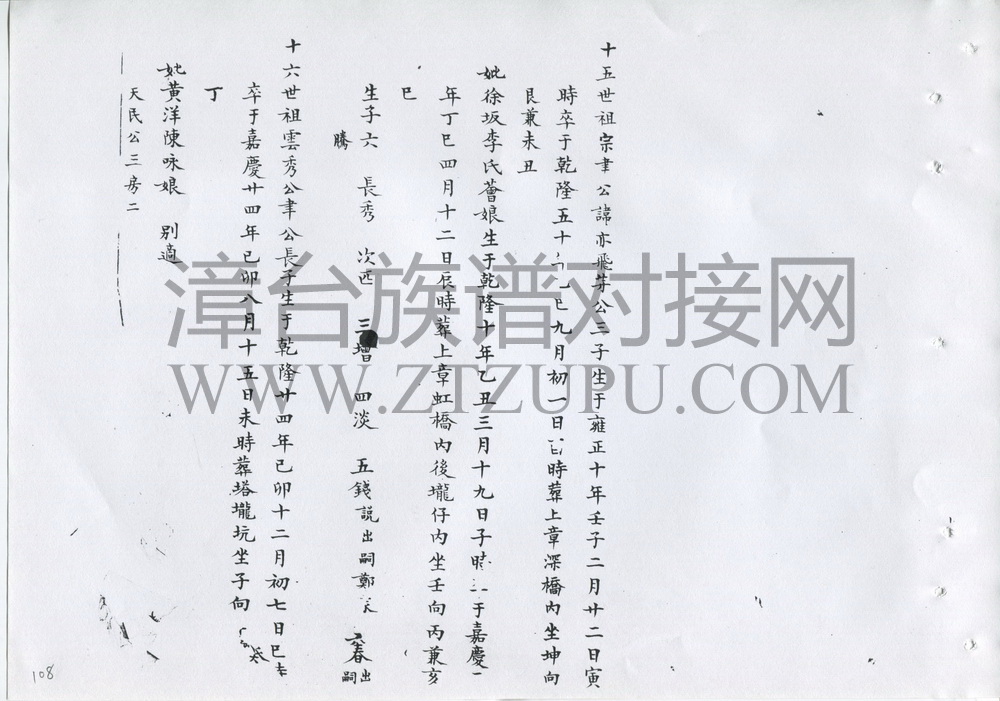 十五世祖宗聿公諱亦飛芽公三子生于雍正十年壬子二月廿二日寅
時卒于乾隆五十 巳九月初一日 時葬上章深橋內坐坤向
艮兼未丑
妣徐坂李氏薈娘生于乾隆十年乙丑三月十九日子時 于嘉慶
年丁巳四月十二日辰時葬上章虹橋內後壠仔內坐壬向丙兼亥
巳
生子六 長秀 次西 三增 四淡 五錢説出嗣鄭 六春出嗣
騰
十六世祖雲秀公聿公長子生于乾隆廿四年己卯十二月初七日巳
卒于嘉慶廿四年己卯八月十五日未時葬塔壠坑坐子向
丁
妣黃洋陳咏娘 別適
天民公三房二
漳台族谱对接网
WWW.ZTZUPU.COM
108